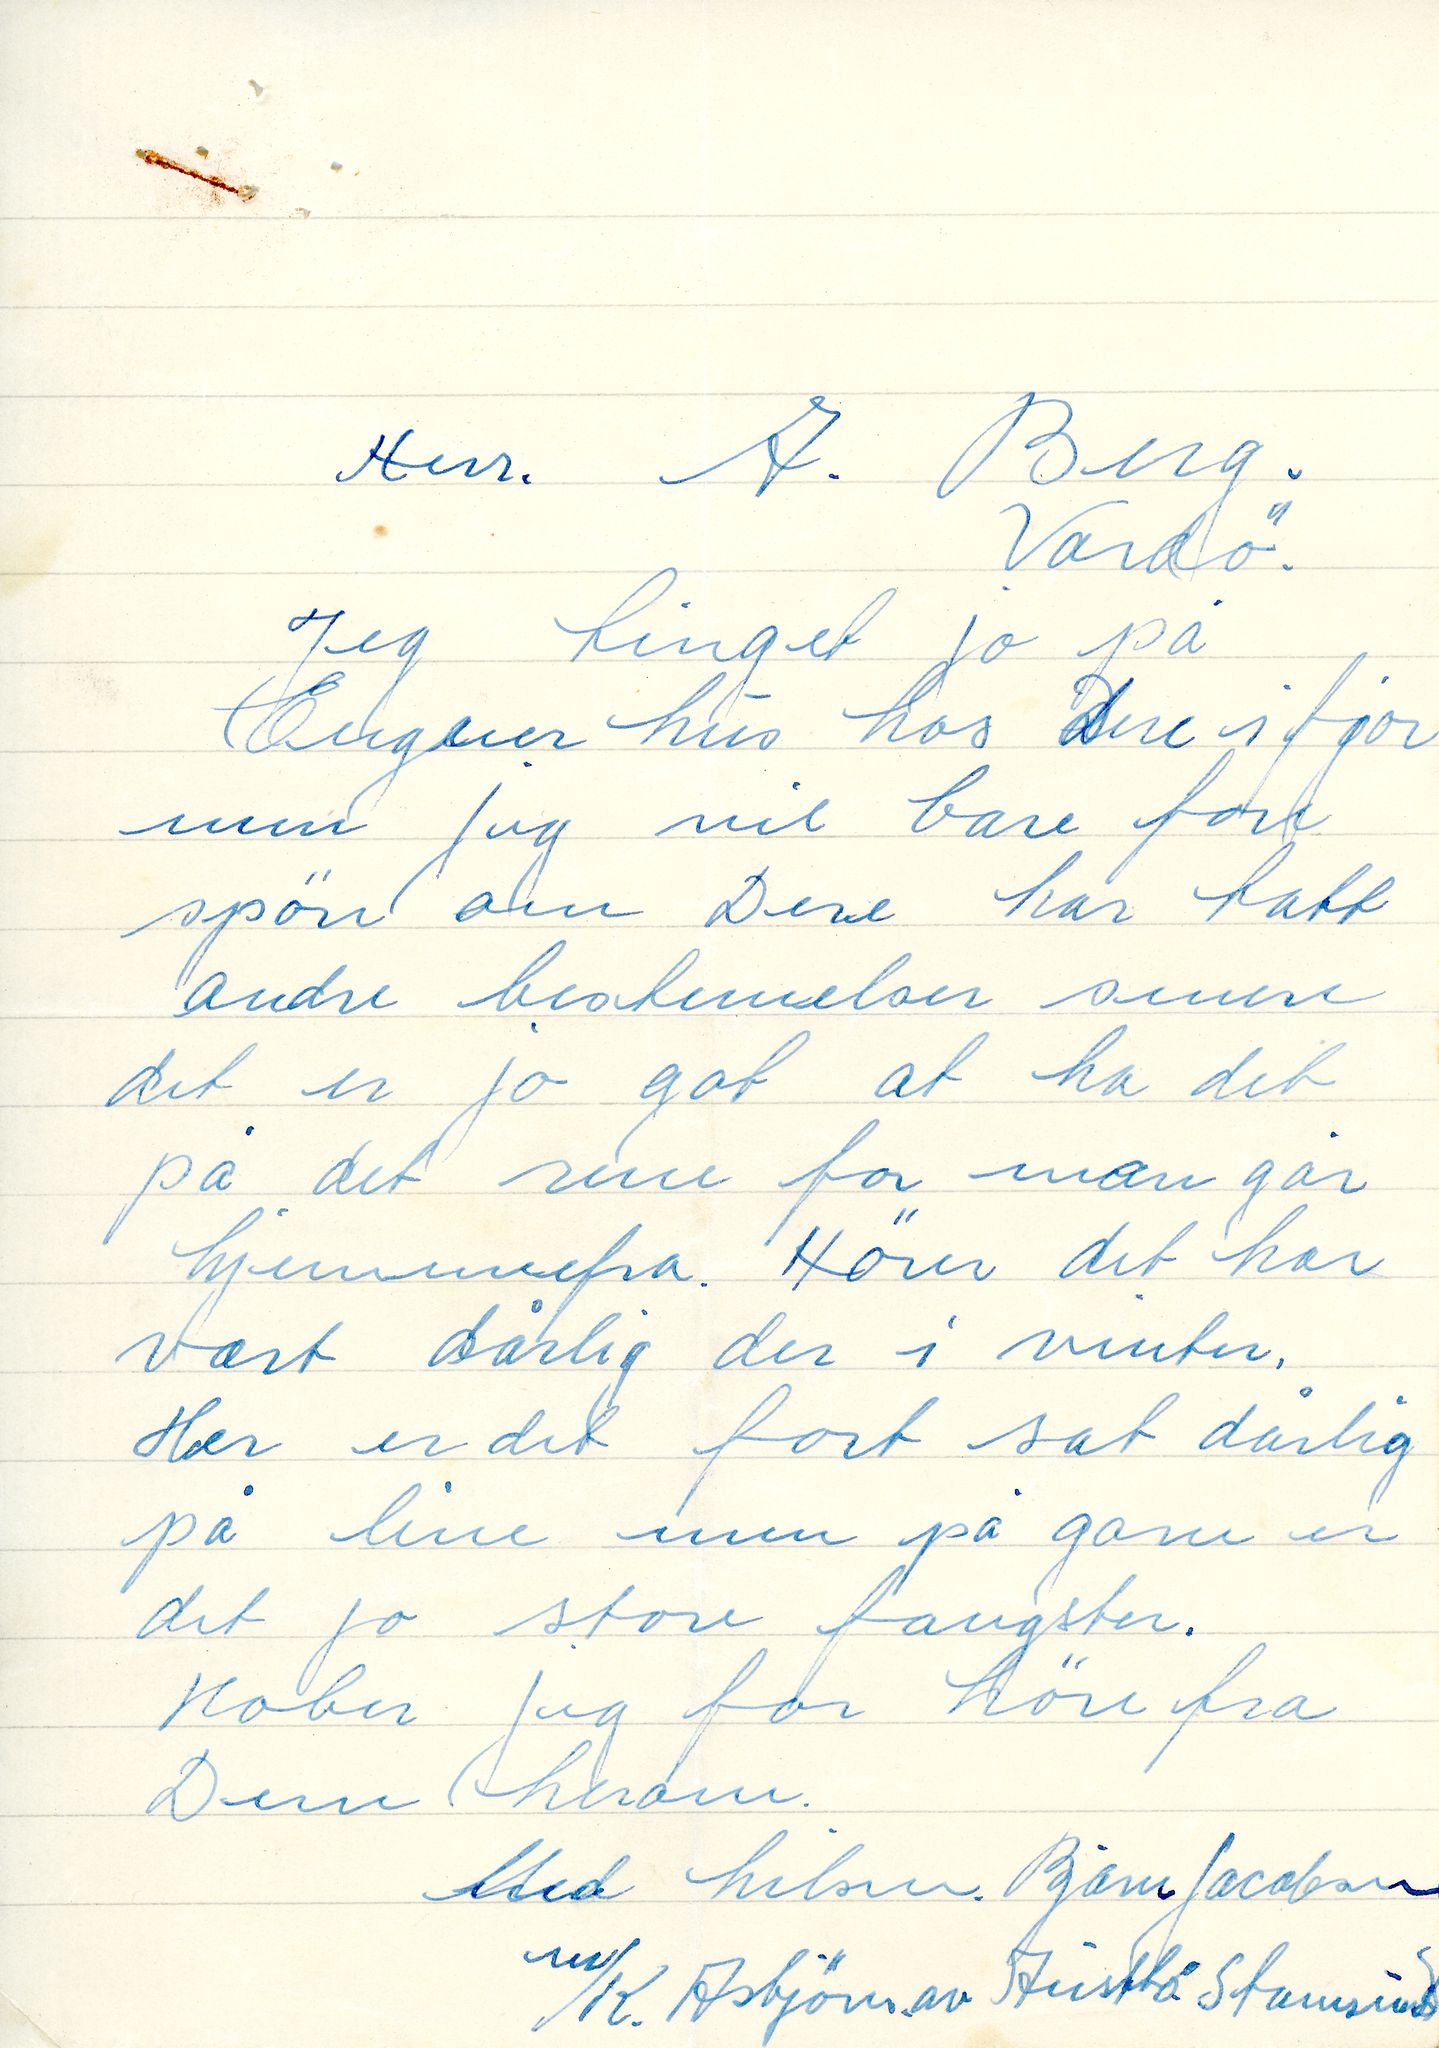 Herr. A. Berg.
Vardö.
Jeg tinget jo på
Engner hus hos Dere i fjor
men jeg vil bare fore
spörr om Dere har tatt
andre bestemelser senere
det er jo got at ha det
på det rene for man går
hjemmefra. Hörer det har
vært dårlig der i vinter.
Her er det fort sat dårlig
på line men på garn er
det jo store fangster.
Hober jeg for höre fra
Dem herom.
Med hilsen. Bjarne Jacobsen
m/K. Asbjörn. av Stamsund